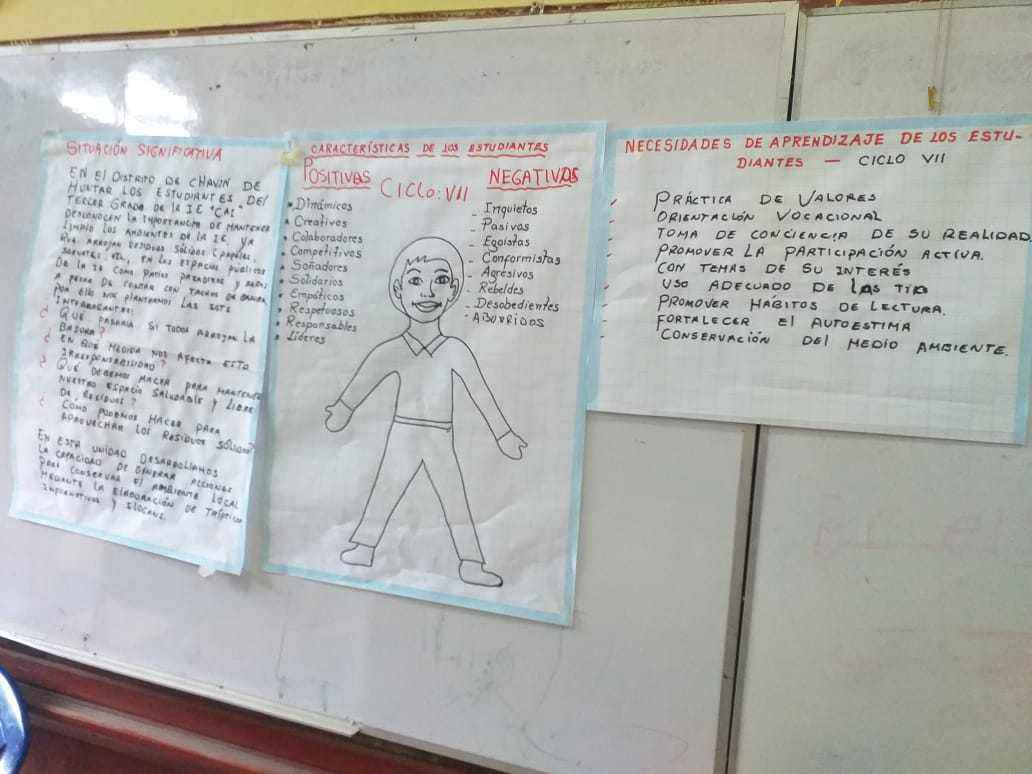 SITUACIÓN SIGNIFICATIVA
EN EL DISTRITO DE CHAVIN DE
HUNTAR LOS ESTUDIANTES DEL
TERCER GRADO DE LA IE "CAI"
DESCONOCEN LA IMPORTANCIA DE MANTENER
LIMPIO LOS AMBIENTES DE LA IE, YA
QUE ARROJAN RESIDUOS SÓLIDOS (PAPELES,
EN LOS ESPACIOS PUBLICOS
DE LA IE COMO PATIOS
A PESAR DE CONTAR CON TACHOS DE BASURA
POR ELLO NOS PLANTEAMOS LAS SGTS
INTERROGANTES:
¿ QUE PASARIA SI TODOS ARROJAN LA
BASURA?
¿ EN QUÉ MEDIDA NOS AFECTA ESTA
IRRESPONSABILIDAD?
¿ QUÉ DEBEMOS HACER PARA MANTENER
NUESTRO ESPACIO SALUDABLE Y LIBRE
DE RESIDUOS?
¿ CÓMO PODEMOS HACER PARA
APROVECHAR LOS RESIDUOS SÓLIDOS?
EN ESTA UNIDAD DESARROLLAMOS
LA CAPACIDAD DE GENERAR ACCIONES
PARA CONSERVAR EL AMBIENTE LOCAL
MEDIANTE LA ELABORACIÓN DE TRÍPTICOS
INFORMATIVOS Y
CARACTERÍSTICAS DE LOS ESTUDIANTES
CICLO: VII
POSITIVAS
• Dinámicos
• Creativos
• Colaboradores
• Competitivos
• Soñadores
• Solidarios
• Empáticos
• Respetuosos
• Responsables
• Líderes
NEGATIVAS
- Inquietos
- Pasivos
- Egoístas
- Conformistas
- Agresivos
- Rebeldes
- Desobedientes
- ABURRIDOS
NECESIDADES DE APRENDIZAJE DE LOS ESTU-
DIANTES — CICLO VII
- PRÁCTICA DE VALORES
- ORIENTACIÓN VOCACIONAL
- TOMA DE CONCIENCIA DE SU REALIDAD
- PROMOVER LA PARTICIPACIÓN ACTIVA.
CON TEMAS DE SU INTERÉS
- USO ADECUADO DE LAS TIC
- PROMOVER HÁBITOS DE LECTURA.
- FORTALECER El AUTOESTIMA
- CONSERVACIÓN DEl MEDIO AMBIENTE.